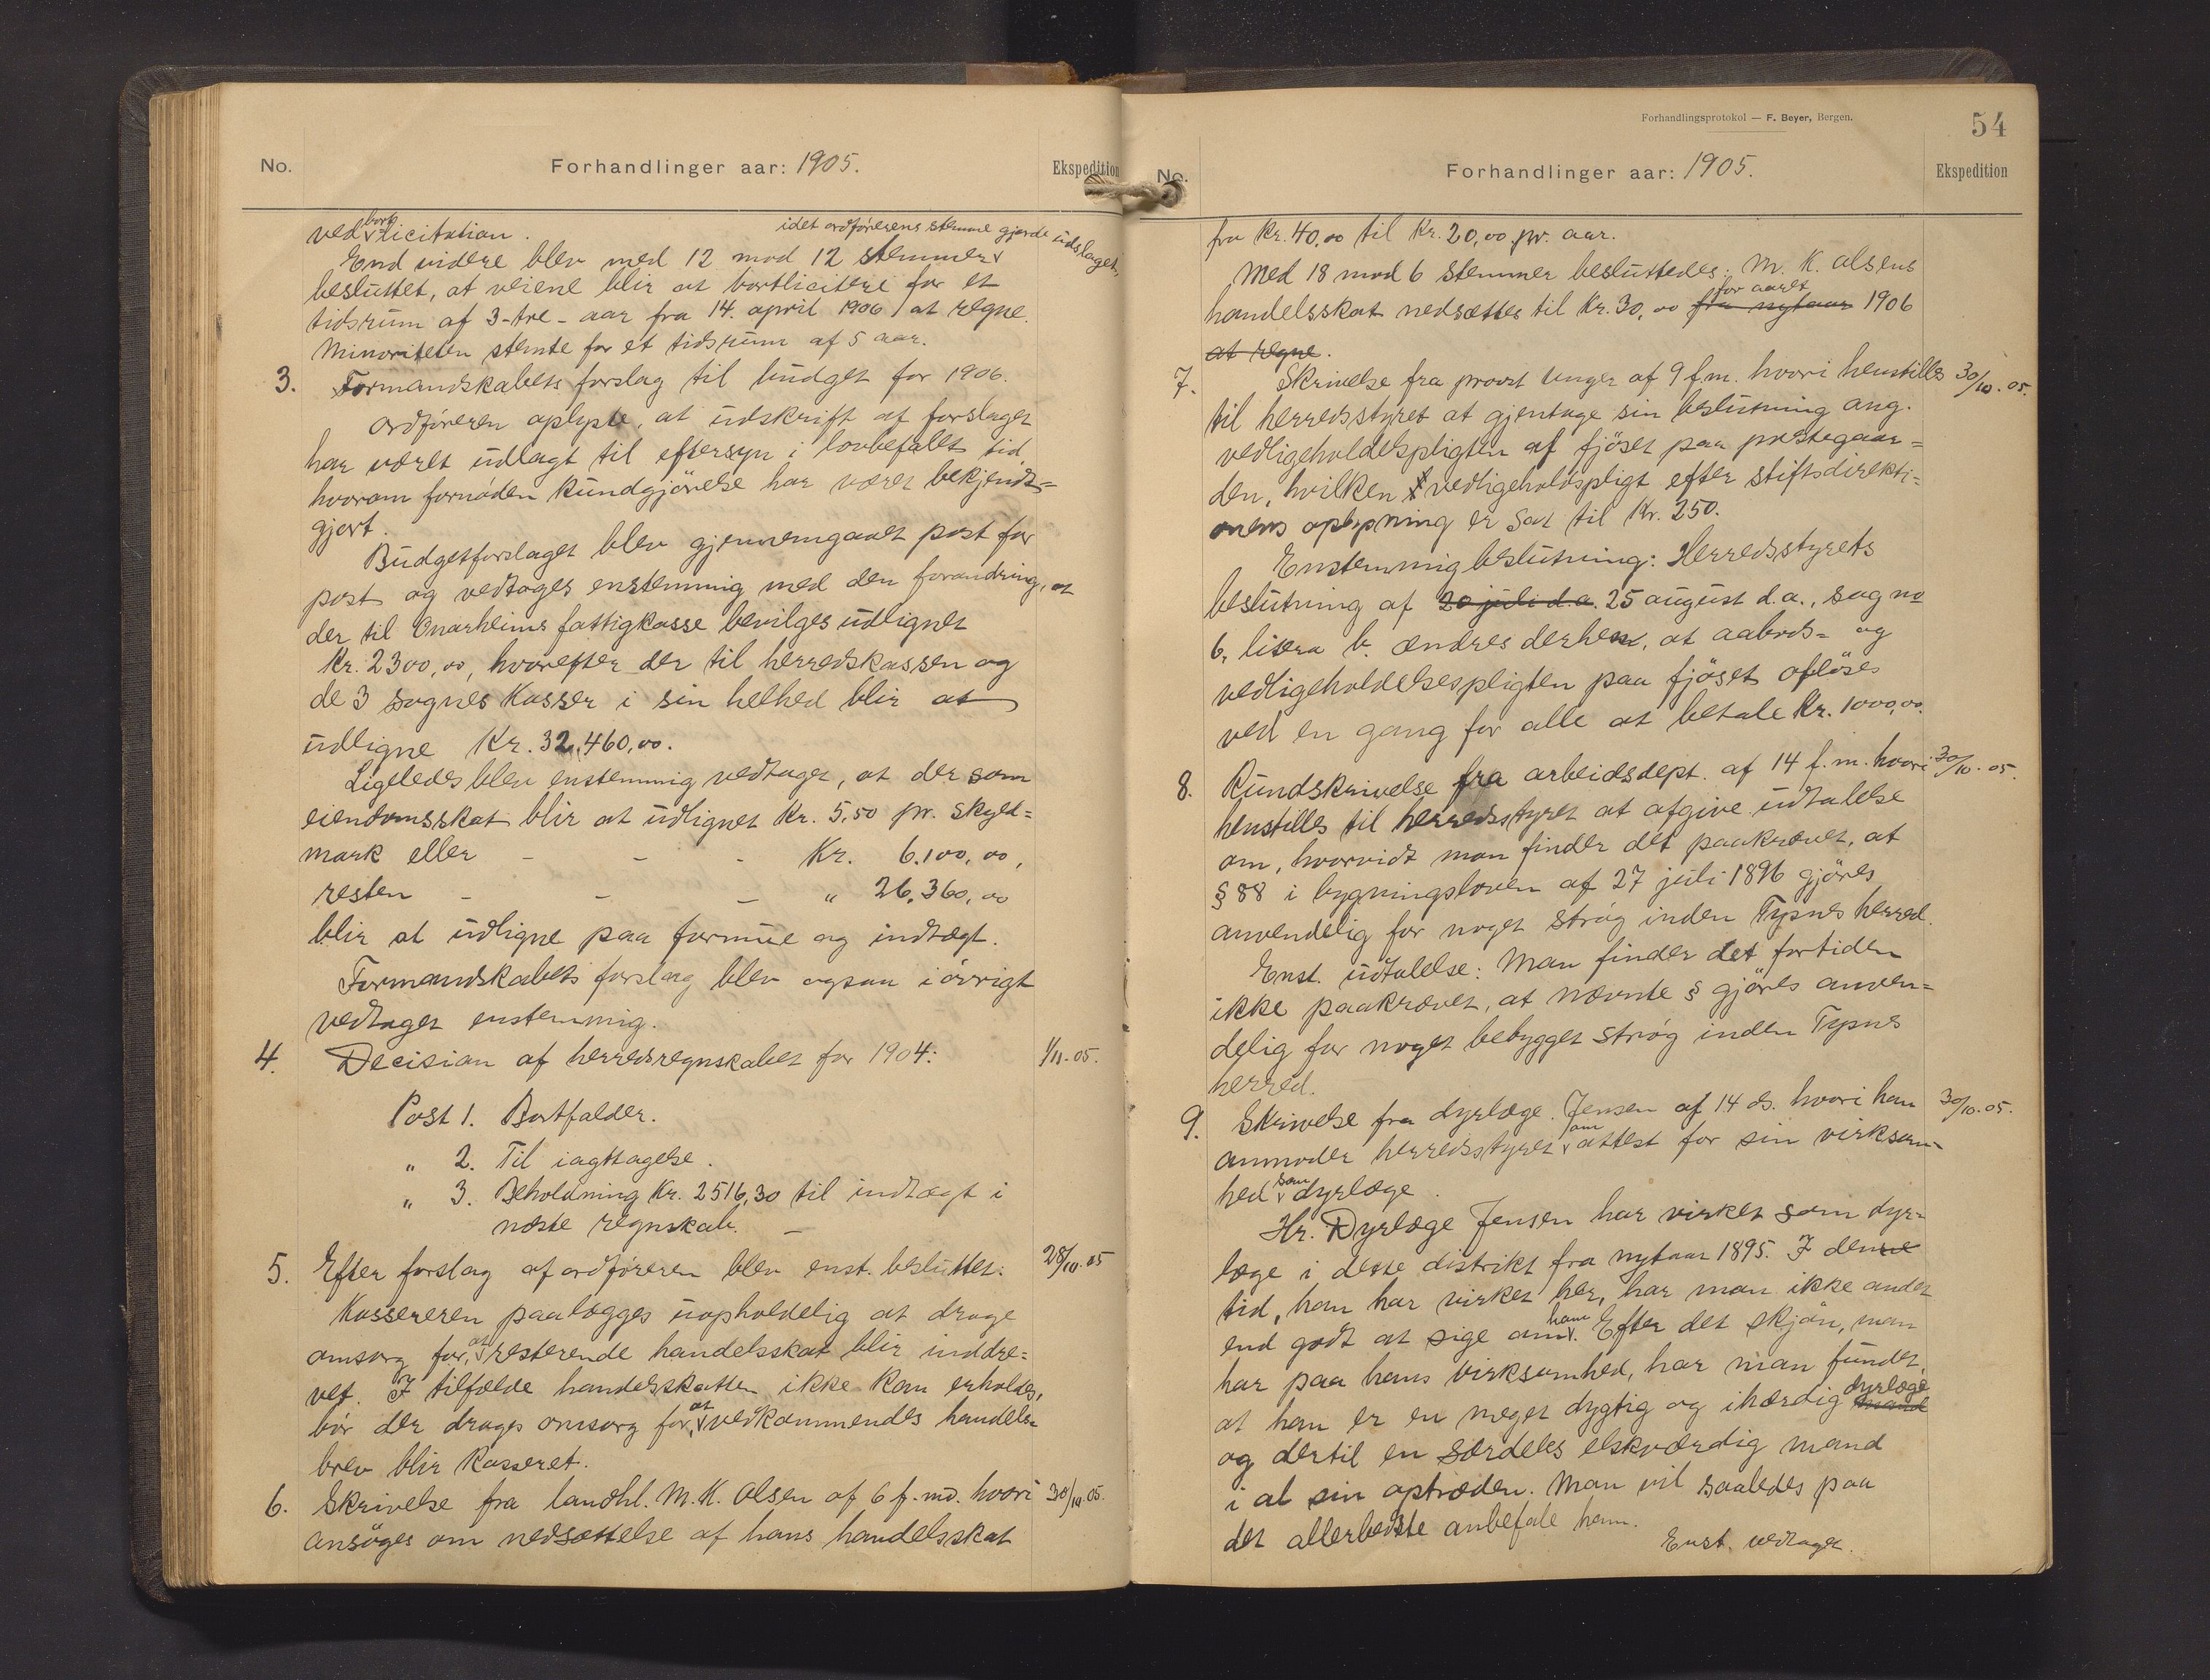 No.
Forhandlinger aar: 1905.
Ekspedition
ved bortlicitation.
End videre blev med 12 mod 12 stemmer idet ordförerens stemme gjorde udslaget,
besluttet, at veiene blir at bortlicitere for et
tidsrum af 3-tre-aar fra 14. april 1906 at regne.
Minoriteten stemte for et tidsrum af 5 aar.
3. Formandskabets forslag til budget for 1906.
Ordföreren oplyste, at udskrift af forslaget
har været udlagt til eftersyn i lovbefalet tid
hvorom fornöden kundgjörelse har været bekjendt=
gjort.
Budgetforslaget blev gjennemgaaet post for
post og vedtoges enstemmig med den forandring, at
der til Onarheims fattigkasse bevilges udlignet
Kr. 2300,00, hvorefter der til herredskassen og
de 3 sognes kasser i sin helhed blir at
udligne Kr. 32,460,00.
Ligeledes blev enstemmig vedtaget, at der som
eiendomsskat blir at udlignet Kr. 5,50 pr. skyld=
mark eller - - - Kr. 6.100,00,
resten - - - " 26,360,00
blir at udligne paa formue og indtægt.
Formandskabets forslag blev ogsaa i övrigt
vedtaget enstemmig.
4. Decision af herredsregnskabet for 1904: 1/11.05.
Post 1. Bortfalder.
" 2. Til iagttagelse.
" 3. Beholdning Kr. 2516,30 til indtægt i
næste regnskab. -
5. Efter forslag af ordföreren blev enst. besluttet: 28/10.05
Kassereren paalægges uopholdelig at drage
omsorg for, at resterende handelsskat blir inddre=
vet. I tilfælde handelsskatten ikke kan erholdes,
bör der drages omsorg for, at vedkommendes handels=
brev blir kasseret.
6. Skrivelse fra landhl. M. K. Olsen af 6 f. md. hvori 30/10.05.
ansöges om nedsættelse af hans handelsskat
Forhandlingsprotokol — F. Beyer, Bergen.
54
No.
Forhandlinger aar: 1905.
Ekspedition
fra Kr. 40,00 til Kr. 20,00 pr. aar.
Med 18 mod 6 stemmer besluttedes: M. K. Olsens
handelsskat nedsættes til Kr. 30,00 fra nytaar for aaret 1906
at regne.
7. Skrivelse fra provst Unger af 9 f.m. hvori henstilles 30/10.05.
til herredsstyret at gjentage sin beslutning ang.
vedligeholdelspligten af fjöset paa prestegaar=
den, hvilken vedligeholdspligt efter stiftsdirekti=
onens oplysning er sat til Kr. 250.
Enstemmig beslutning: Herredsstyrets
beslutning af 20 juli d.a. 25 august d.a., sag no
6, litera b. ændres derhen, at aabods= og
vedligeholdelsespligten paa fjöset aflöses
ved en gang for alle at betale Kr. 1000,00.
8. Rundskrivelse fra arbeidsdept. af 14 f.m. hvori 30/10.05.
henstilles til herredsstyret at afgive udtalelse
om, hvorvidt man finder det paakrævet, at
§ 88 i bygningsloven af 27 juli 1896 gjöres
anvendelig for noget ströг inden Tysnes herred.
Enst. udtalelse: Man finder det fortiden
ikke paakrævet, at nævnte § gjöres anven=
delig for noget bebygget strög inden Tysnes
herred.
9. Skrivelse fra dyrlæge Jensen af 14 ds. hvori han 30/10.05.
anmoder herredsstyret om attest for sin virksom=
hed som dyrlæge.
Hr. Dyrlæge Jensen har virket som dyr=
læge i dette distrikt fra nytaar 1895. I denne
tid, han har virket her, har man ikke andet
end godt at sige om ham. Efter det skjön, man
har paa hans virksomhed, har man fundet,
at han er en meget dygtig og ihærdig mand dyrlæge
og dertil en særdeles elskværdig mand
i al sin optræden. Man vil saaledes paa
det allerbedste anbefale ham.
Enst. vedtaget.